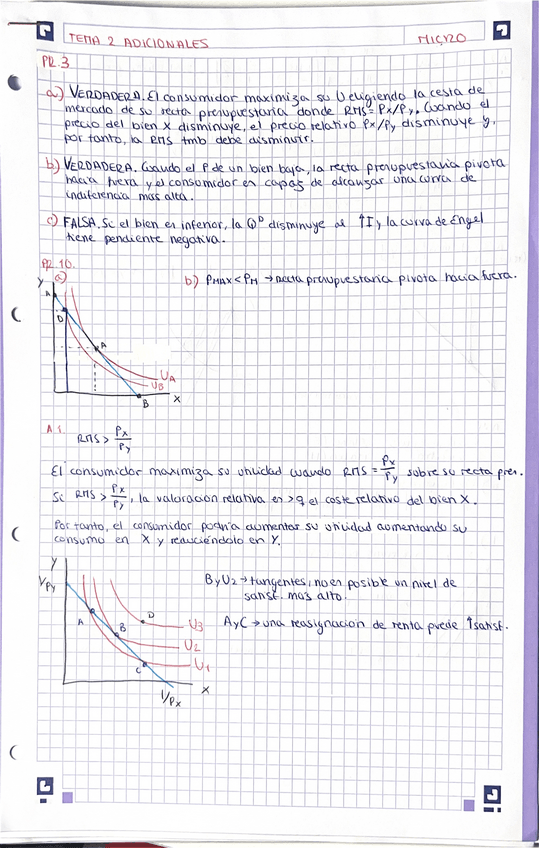 TEMA 2 ADICIONALES
MICRO
PR.3
a) VERDADERA. El consumidor maximiza su U eligiendo la cesta de
mercado de su recta presupuestaria donde RMS = Px/Py. Cuando el
precio del bien X disminuye, el precio relativo Px/Py disminuye y,
por tanto, la RMS tmb debe disminuir.
b) VERDADERA. Cuando el P de un bien baja, la recta presupuestaria pivota
hacia fuera y el consumidor es capaz de alcanzar una curva de
indiferencia más alta.
c) FALSA. Si el bien es inferior, la Qᴰ disminuye al ↑I, la curva de Engel
tiene pendiente negativa.
PR.10.
a)
b) PMAX < PM → recta presupuestaria pivota hacia fuera.
Y
A
D
A
UA
UB
B
X
A 1.
RMS > Px/Py
El consumidor maximiza su utilidad cuando RMS = Px/Py sobre su recta pres.
Si RMS > Px/Py, la valoración relativa es > q el coste relativo del bien X.
Por tanto, el consumidor podría aumentar su utilidad aumentando su
consumo en X y reduciéndolo en Y.
Y
I/Py
B y U2 → tangentes, no es posible un nivel de
satisf. más alto.
A y C → una reasignación de renta puede ↑satisf.
A
B
D
C
U3
U2
U1
X
I/Px